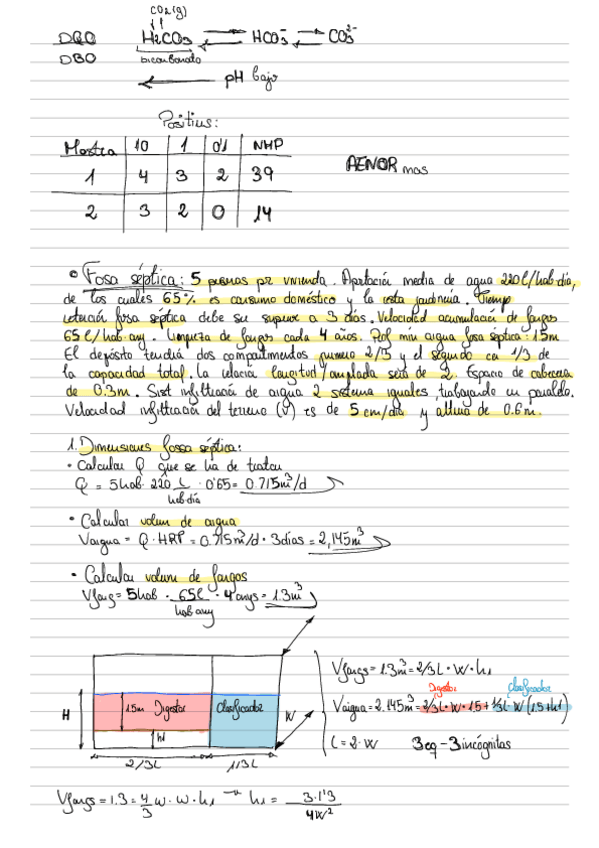 CO2(g)
DQO H2CO3 HCO3⁻ CO3²⁻
DBO bicarbonato
pH bajo
Positius:
Mostra 10 1 0'1 NMP
1 4 3 2 39
2 3 2 0 14
AENOR mas
• Fosa séptica: 5 personas por vivienda. Aportación media de agua 220 l/hab·día,
de los cuales 65% es consumo doméstico y la resta jardineria. Tiempo
retención fosa séptica debe ser superior a 3 días. Velocidad acumulación de fangos
65 l/hab·any. Limpieza de fangos cada 4 años. Prof min aigua fosa séptica: 1'5m
El depósito tendrá dos compartimentos primero 2/3 y el segundo en 1/3 de
la capacidad total. La relación longitud/amplada será de 2. Espacio de cabecera
de 0.3m. Sist infiltración de aigua 2 sistema iguales, trabajando en paralelo.
Velocidad infiltración del terreno (V) es de 5 cm/día y altura de 0.6m.
1. Dimensiones fossa séptica:
• Calcular Q que se ha de tratar
Q = 5hab · 220 l/hab·día · 0'65 = 0.715 m³/d
• Calcular volum de aigua
Vaigua = Q · HRP = 0.715 m³/d · 3días = 2,145 m³
• Calcular volum de fangos
Vfang = 5hab · 65l/hab any · 4anys = 1.3m³
Vfangs = 1.3m³ = 2/3 L · W · h1
Digestor Clarificador
Vaigua = 2.145m³ = 2/3 L · W · 1.5 + 1/3 L · W (1.5 + h1)
L = 2 · W 3eq - 3incógnitas
H 1.5m Digestor Clarificador W
h1
2/3L 1/3L
Vfangs = 1.3 = 4/3 W · W · h1 → h1 = 3·1'3/4W²